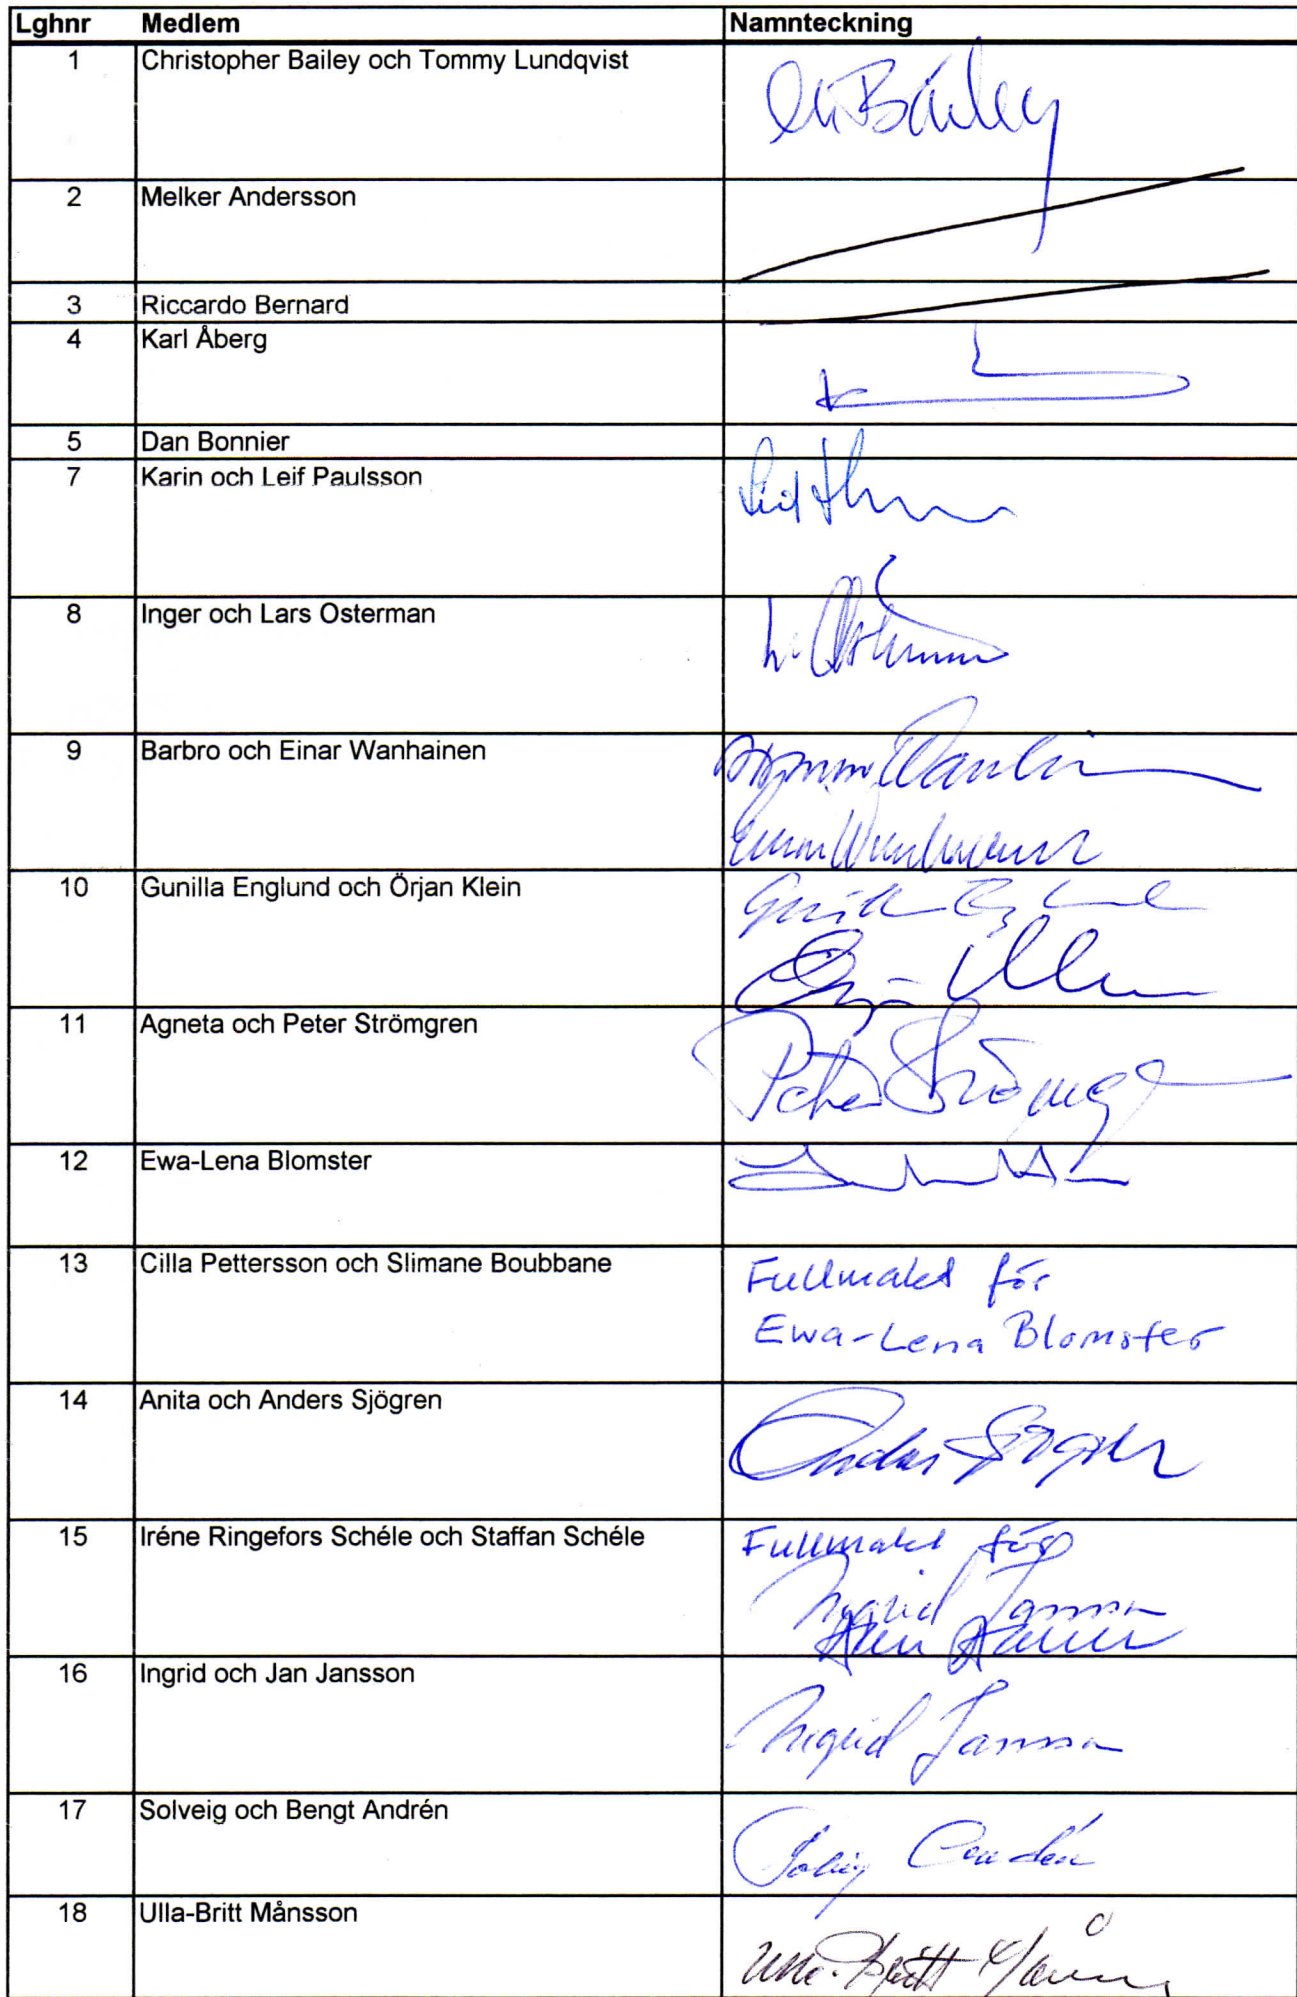 Lghnr Medlem Namnteckning
1 Christopher Bailey och Tommy Lundqvist Bailey
2 Melker Andersson
3 Riccardo Bernard
4 Karl Åberg
5 Dan Bonnier
7 Karin och Leif Paulsson
8 Inger och Lars Osterman
9 Barbro och Einar Wanhainen
10 Gunilla Englund och Örjan Klein
11 Agneta och Peter Strömgren Peter
12 Ewa-Lena Blomster
13 Cilla Pettersson och Slimane Boubbane Fullmakt för
Ewa-Lena Blomster
14 Anita och Anders Sjögren Anders Sjögren
15 Iréne Ringefors Schéle och Staffan Schéle Fullmakt för
Ingrid Jansson
16 Ingrid och Jan Jansson Ingrid Jansson
17 Solveig och Bengt Andrén Solveig Andrén
18 Ulla-Britt Månsson Ulla-Britt Månsson